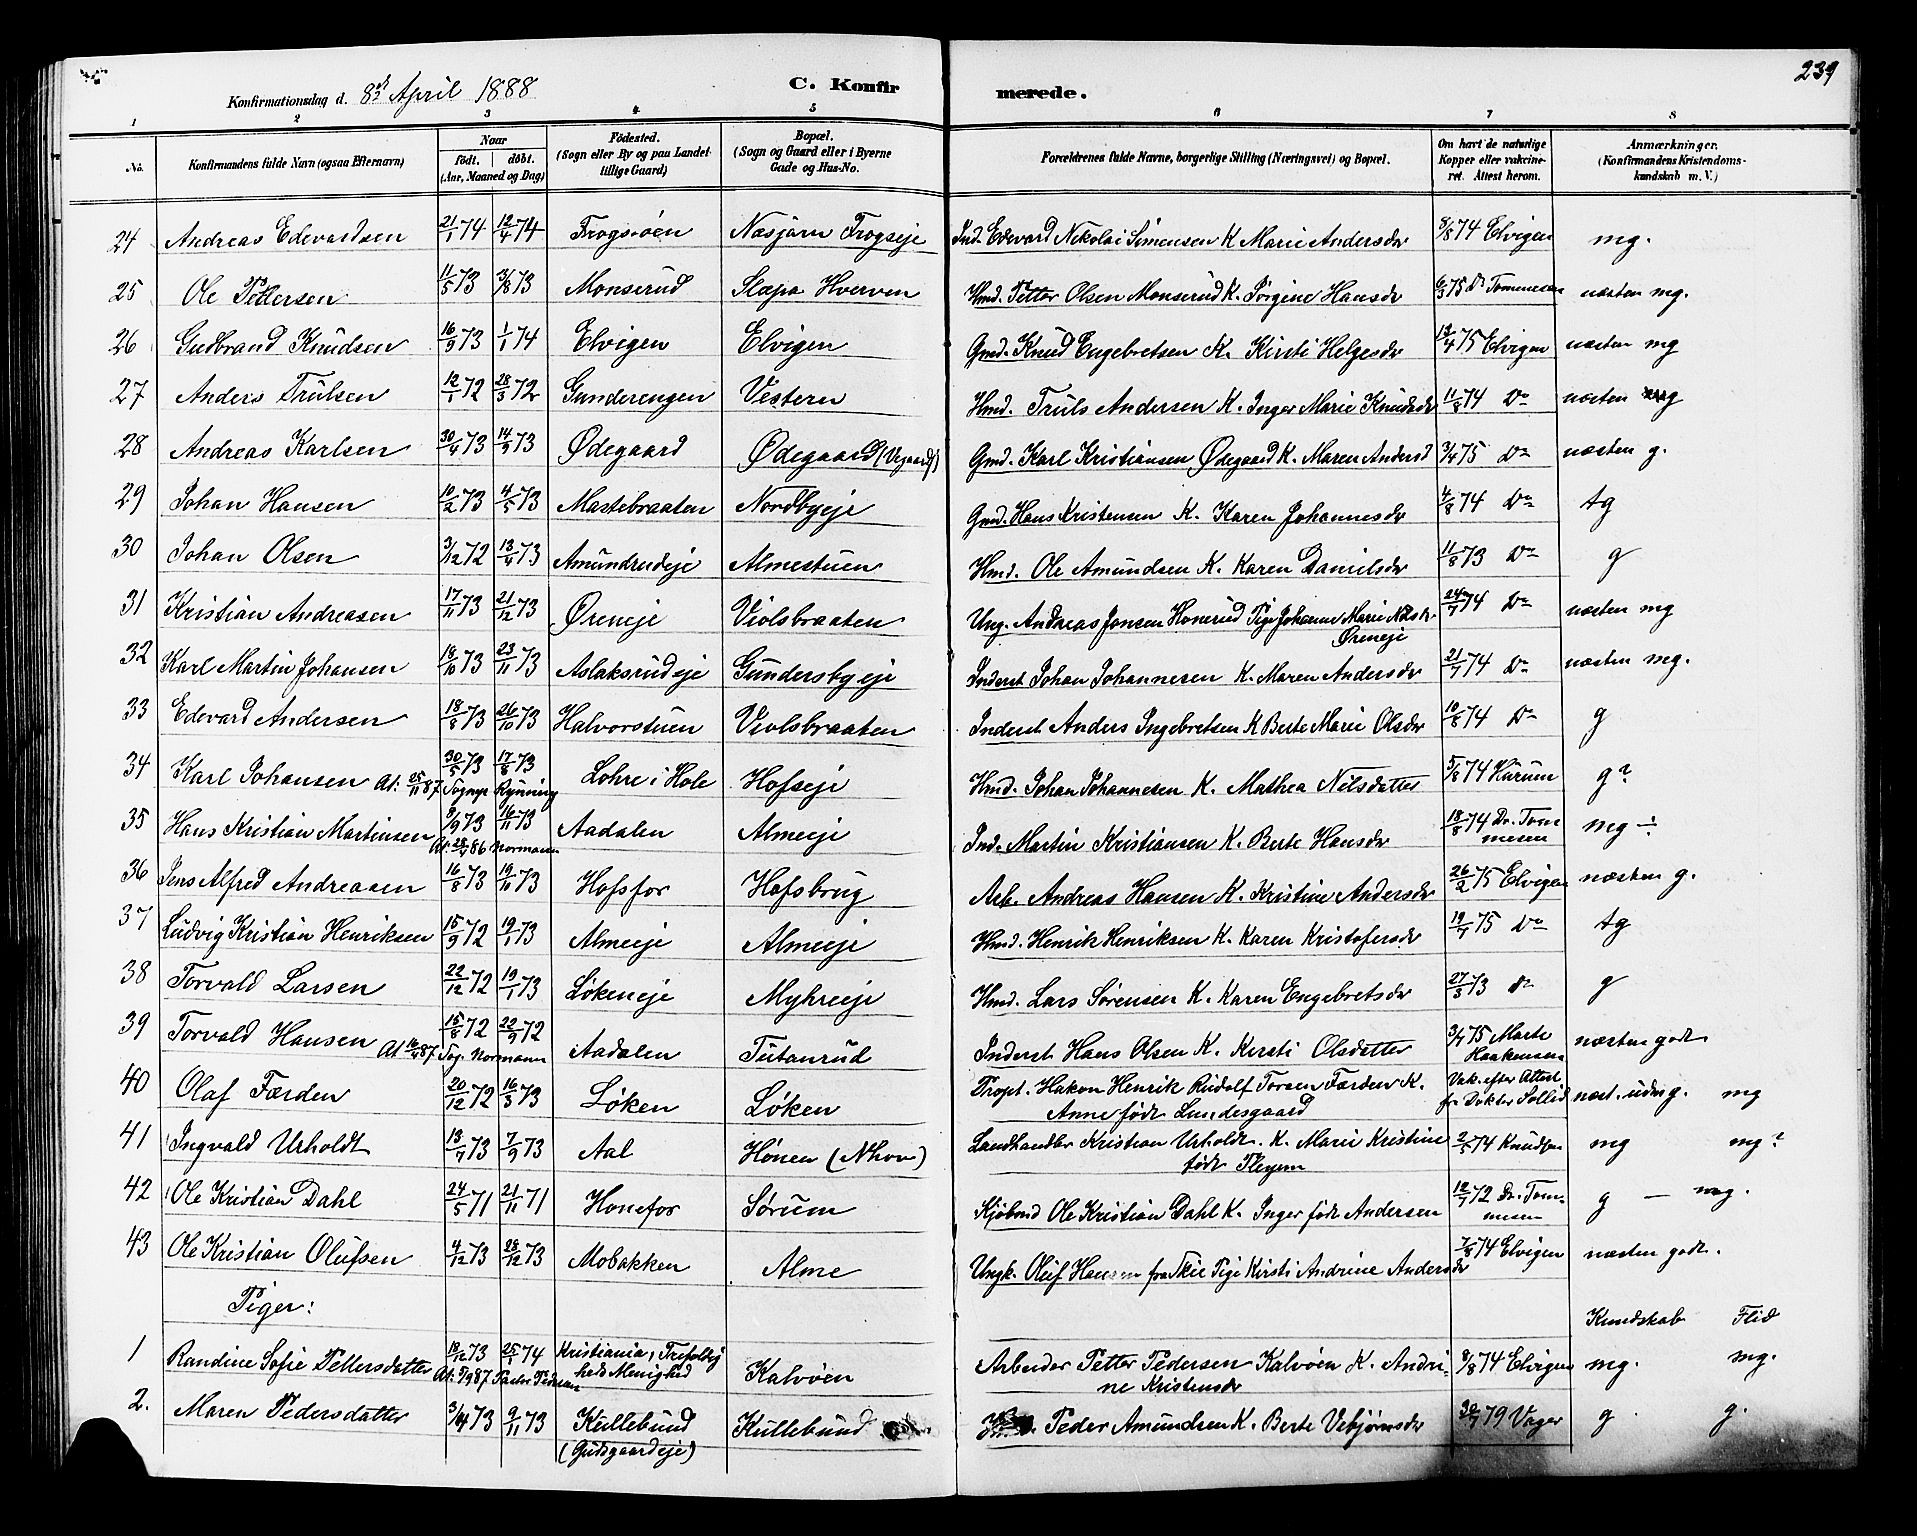 239
Konfirmationsdag d. 8de April 1888 C. Konfirmerede.
1 2 3 4 5 6 7 8
No. Konfirmandens fulde Navn (ogsaa Efternavn) Naar født. døbt. (Aar, Maaned og Dag) Fødested. (Sogn eller By og paa Landet tillige Gaard) Bopæl. (Sogn og Gaard eller i Byerne Gade og Hus-No. Forældrenes fulde Navne, borgerlige Stilling (Næringsvei) og Bopæl. Om havt de naturlige Kopper eller vakcineret. Attest herom. Anmærkninger. (Konfirmandens Kristendomskundskab m. V.)
24 Andreas Edevardsen 21/1 74 12/4 74 Frogsøen Næsjarn Frogseje Ind. Edevard Nikolai Simensen K Marie Andersdr 8/8 74 Elvigen mg.
25 Ole Pettersen 11/5 73 3/8 73 Monserud Slapa Hverven Hmd. Petter Olsen Monserud K. Sørgine Hansdr 6/3 75 Dr Tommesen næsten mg.
26 Gudbrand Knudsen 16/9 73 1/1 74 Elvigen Elvigen Gmd. Knud Engebretsen K. Kirsti Helgesdr 12/4 75 Elvigen næsten mg
27 Anders Trulsen 12/1 72 28/3 72 Gunderengen Vestern Hmd. Truls Andersen K. Inger Marie Knudsdr 11/8 74 Do næsten mg
28 Andreas Karlsen 30/4 73 14/9 73 Ødegaard Ødegaard (Vegaard) Gmd. Karl Kristiansen Ødegaard K. Maren Andersd 3/4 75 Do næsten g.
29 Johan Hansen 10/2 73 4/5 73 Mastebraaten Nordbyeje Gmd. Hans Kristensen K. Karen Johannesdr 4/8 74 Do tg
30 Johan Olsen 3/12 72 13/4 73 Amundrudeje Almestuen Hmd. Ole Amundsen K. Karen Danielsdr 11/8 73 Do g
31 Kristian Andreasen 17/11 73 21/12 73 Øreneje Violsbraaten Ung. Andreas Jonsen Honerud Pige Johanne Marie Nilsdr 24/7 74 Do næsten mg
Øreneje
32 Karl Martin Johansen 18/10 73 23/11 73 Aslaksrudeje Gundersbyeje Inderst Johan Johannesen K. Maren Andersdr 21/7 74 Do næsten mg.
33 Edevard Andersen 18/8 73 26/10 73 Halvorstuen Violsbraaten Inderst Anders Ingebretsen K Berte Marie Olsdr 10/8 74 Do g
34 Karl Johansen At: 25/11 87 30/5 73 17/8 73 Lohre i Hole Hofseje Hmd. Johan Johannesen K. Mathea Nilsdatter 5/8 74 Hurum g?
Sognepr Rynning
35 Hans Kristian Martinsen 8/9 73 16/11 73 Aadalen Almeeje Ind. Martin Kristiansen K. Berte Hansdr 18/8 74 Dr. Tommesen mg ÷
At. 86 Normann
36 Jens Alfred Andreasen 16/8 73 19/10 73 Hofsfos Hofsbrug Arb. Andreas Hansen K. Kristine Andersdr 26/2 75 Elvigen næsten g.
37 Ludvig Kristian Henriksen 15/9 72 19/1 73 Almeeje Almeeje Hmd. Henrik Henriksen K. Karen Kristofersdr 19/7 75 Do tg
38 Torvald Larsen 22/12 72 19/1 73 Løkeneje Myhreeje Hmd. Lars Sørensen K. Karen Engebretsdr 27/3 73 Do g
39 Torvald Hansen 15/8 72 22/9 72 Aadalen Tutanrud Inderst Hans Olsen K. Kersti Olsdatter 3/7 75 Marte Haakensen næsten godt
At 16/4 87 Sog. Normann
40 Olaf Færden 20/12 72 16/3 73 Løken Løken Propt. Hakon Henrik Rudolf Torsen Færden K. Vak. efter Attest fr Doktor Sollid næst. udm g. mg
Anne født Lundesgaard
41 Ingvald Urholdt 13/7 73 7/9 73 Aal Hønen (Nhov) Landhandler Kristian Urholdt. K. Marie Kristine 2/5 74 Knudsen mg mg?
født Pleyem
42 Ole Kristian Dahl 24/5 71 21/11 71 Honefos Sørum Kjøbmd Ole Kristian Dahl K. Inger født Andersen 12/7 72 Dr. Tommesen g — mg.
43 Ole Kristian Olufsen 4/12 73 28/12 73 Mobakken Alme Ungk. Oluf Hansen fra Skie Pige Kirsti Andrine Andersdr 7/8 74 Elvigen næsten godt.
Piger: Kundskab Flid
1 Randine Sofie Pettersdatter 18/12 73 25/1 74 Kristiania, Trefoldigheds Menighed Kalvøen Arbeider Petter Pedersen Kalvøen K. Andrine Kristensdr 8/8 74 Elvigen mg. mg.
At. 5/9 87 Pastor Pedersen
2. Maren Pedersdatter 3/4 73 9/11 73 Kullebund Kullebund Peder Amundsen K. Berte Vebjørnsdr 30/7 79 Vager g g.
(Gudsgaardeje)